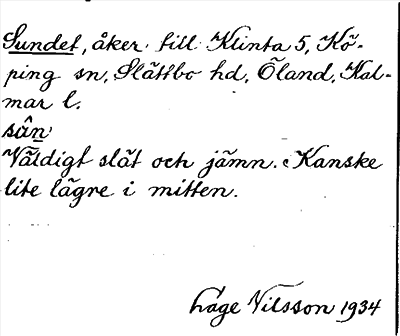 Sundet, åker till Klinta 5, Kö-
ping sn, Slättbo hd, Öland, Kal-
mar l.
sûn̲
Väldigt slät och jämn. Kanske
lite lägre i mitten.
Åge Nilsson 1934